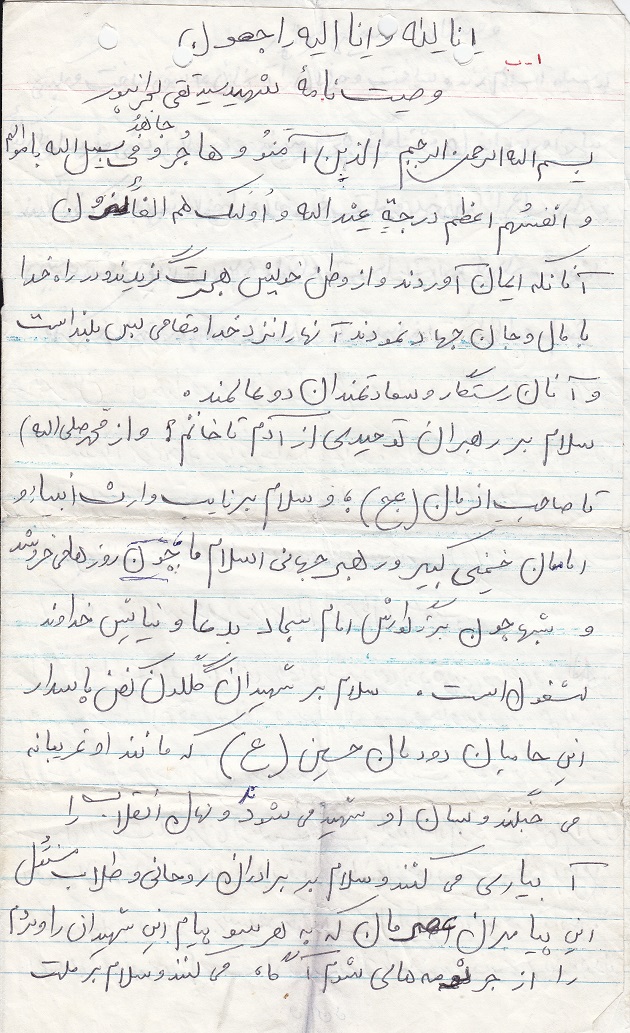 انا لله و انا الیه راجعون
۱-ب
وصیت نامهٔ شهید سید تقی
جاهدُ
بسم الله الرحمن الرحیم الذین آمنو و هاجرو و فی سبیل الله باموالهم
و انفسُهم اعظم درجةٍ عند الله و اُولئک هم الفائزون
آنانکه ایمان آوردند و از وطن خویش هجرت گزیدند و در راه خدا
با مال و جان جهاد نمودند آنها را نزد خدا مقامی بس بلند است
و آنان رستگار و سعادتمندان دو عالمند .
سلام بر رهبران توحیدی از آدم تا خاتم و از محمد صلی الله)
تا صاحب الزمان (عج) ؛ و سلام بر نایب وارث انبیاء و
امامان خمینی کبیر و رهبر جهانی اسلام ما چون روزهای
و شبها چون بزرگوارش امام سجاد بدعا و نیایش خداوند
مشغول است . سلام بر شهیدان گلگون کفن پاسدار
این حامیان دودمان حسین (ع) که مانند او غریبانه
می جنگند و بسان او شهید می شوند و نهال انقلاب را
آبیاری می کنند و سلام بر برادران روحانی و طلاب
این پیامبران عصرمان که به هر سو پیام این شهیدان را و مردم
را از های شوم آگاه می کنند و سلام بر ملت